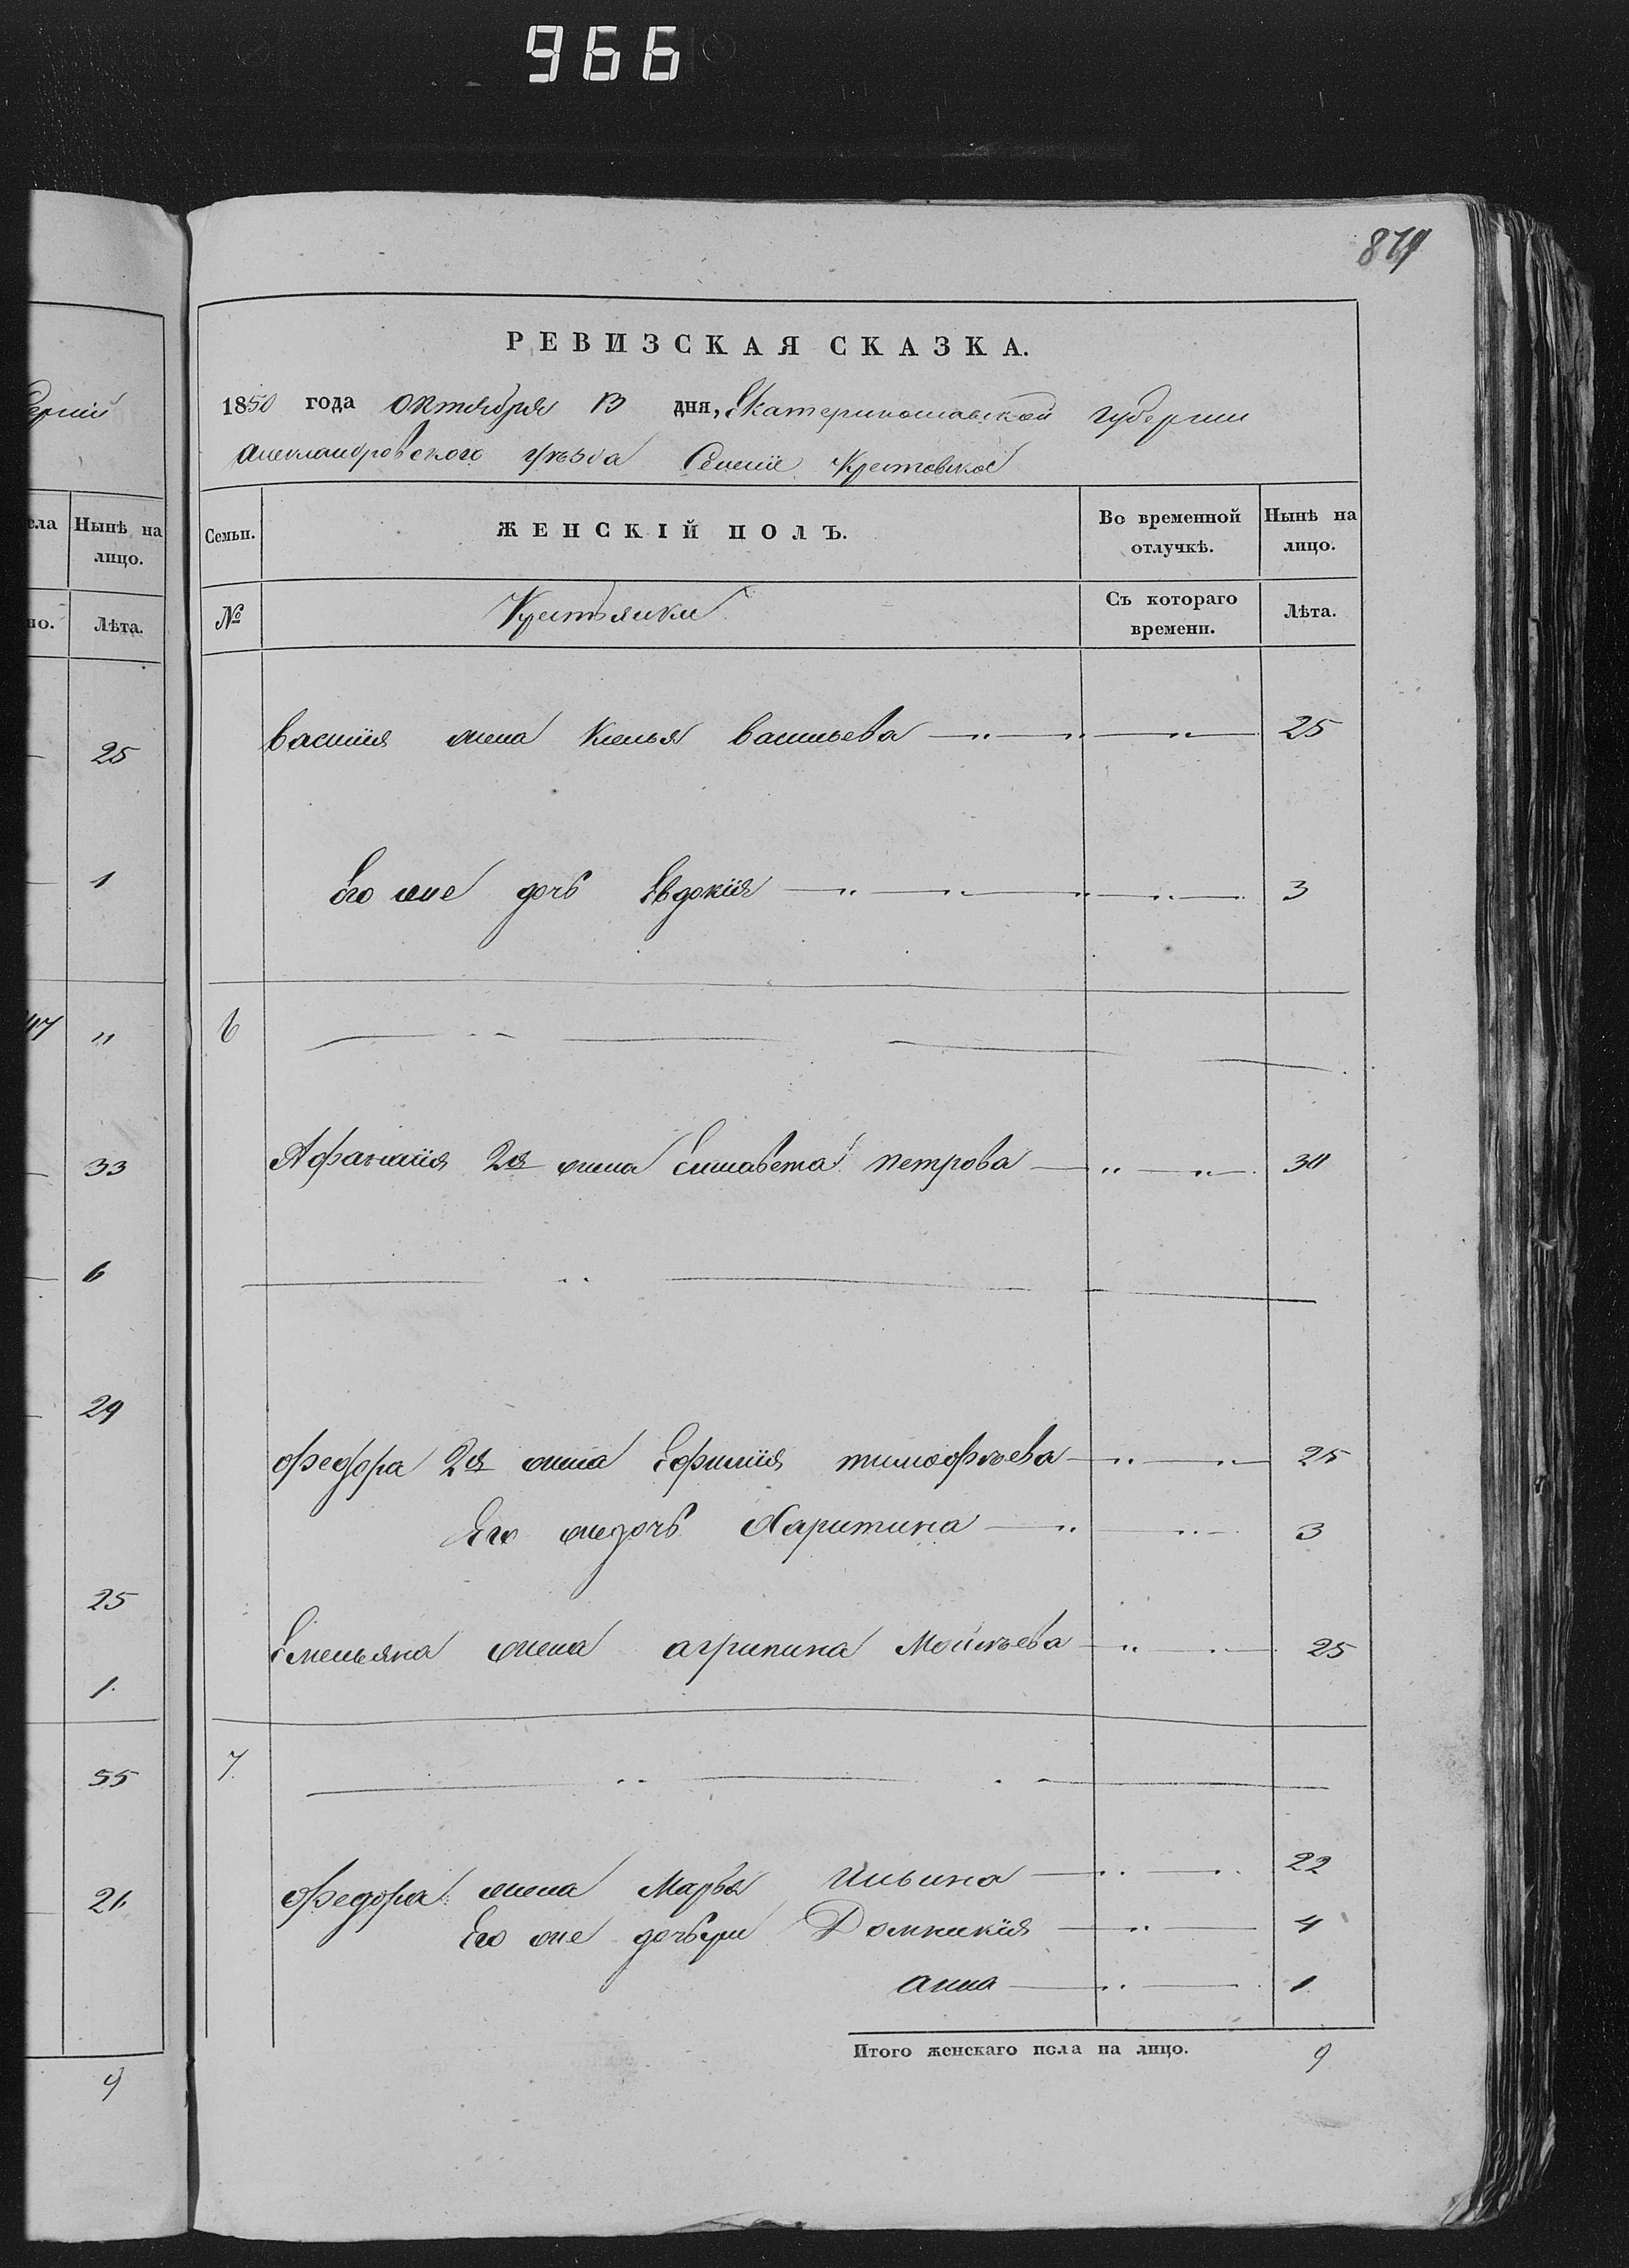 966
879
РЕВИЗСКАЯ СКАЗКА.
1850 года Октября 13 дня, Екатеринославской губернии
Александровского уѣзда Селеніе Крестовское
ела
Нынѣ на лицо.
Семьи.
ЖЕНСКІЙ ПОЛЪ.
Во временной отлучкѣ.
Нынѣ на лицо.
но.
Лѣта.
№
Крестьянки
Съ котораго времени.
Лѣта.
25
1
47 "
33
6
29
25
1.
55
21
9
Василія жена Васильева — " — " — " — 25
Его же дочь Евдокія — " — " — " — " — 3
6
Афанасія 2я жена Елисавета Петрова — " — " — 30
Федора 2я жена Ефимія тимофѣева — " — " — 25
Его же дочь Харитина — " — " — 3
Емельяна жена агрипина Моисѣева — " — " — 25
7.
Федора жена Марья Ильина — " — " 22
Его же дочьри Домникія — " — 4
анна — " — 1.
Итого женскаго пола на лицо. 9